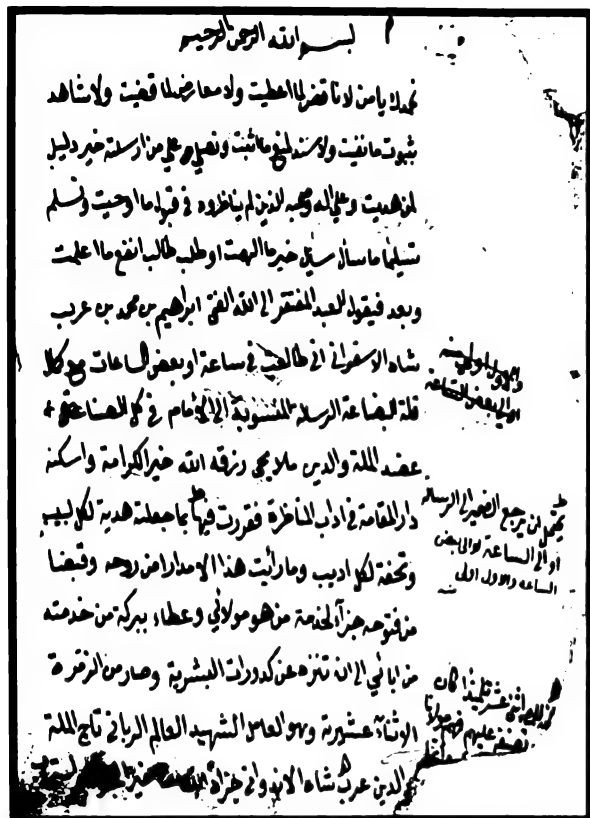 بسم الله الرحمن الرحيم
نحمدك يا من لا ناقض لما اعطيت ولا معارض لما قضيت ولا مشاهد
بثبوت ما نفيت ولا سند لمنع ما اثبت ونصلي على من ارسلته خير دليل
لمن هديت وعلى اله وصحبه الذين لم يناظروه في قبول ما اوحيت ونسلم
تسليما ما سأل سايل خير ما الهمت او طلب طالب انفع ما اعلمت
وبعد فيقول العبد المفتقر الى الله الغني ابراهيم بن محمد بن عرب
شاه الاسفرايني اني طالعت في ساعة او بعض الساعات مع كمال
قلة البضاعة الرسالة المنسوبة الى الامام في كل الصناعة
عضد الملة والدين ملا يحيى رزقه الله خير الكرامة واسكنه
دار المقامة في اداب المناظرة فقررت فيها ما جعلته هدية لكل لبيب
وتحفة لكل اديب وما رأيت هذا الا مددا من روحه وقبضا
من فتوحه جزآء لخدمة من هو مولائي وعطاء ببركة من خدمته
من ابائي الى ان تنزه عن كدورات البشرية وصار من الزفرة
الاثنا عشرية وهو العامل الشهيد العالم الرباني تاج الملة
والدين عرب شاه
والاول اولى منه
او الى بعض الساعة
يحتمل ان يرجع الضمير الى الرسالة
او الى الساعة او الى بعض
الساعه والاول اولى
منه
اثنى عشر تلميذا كان